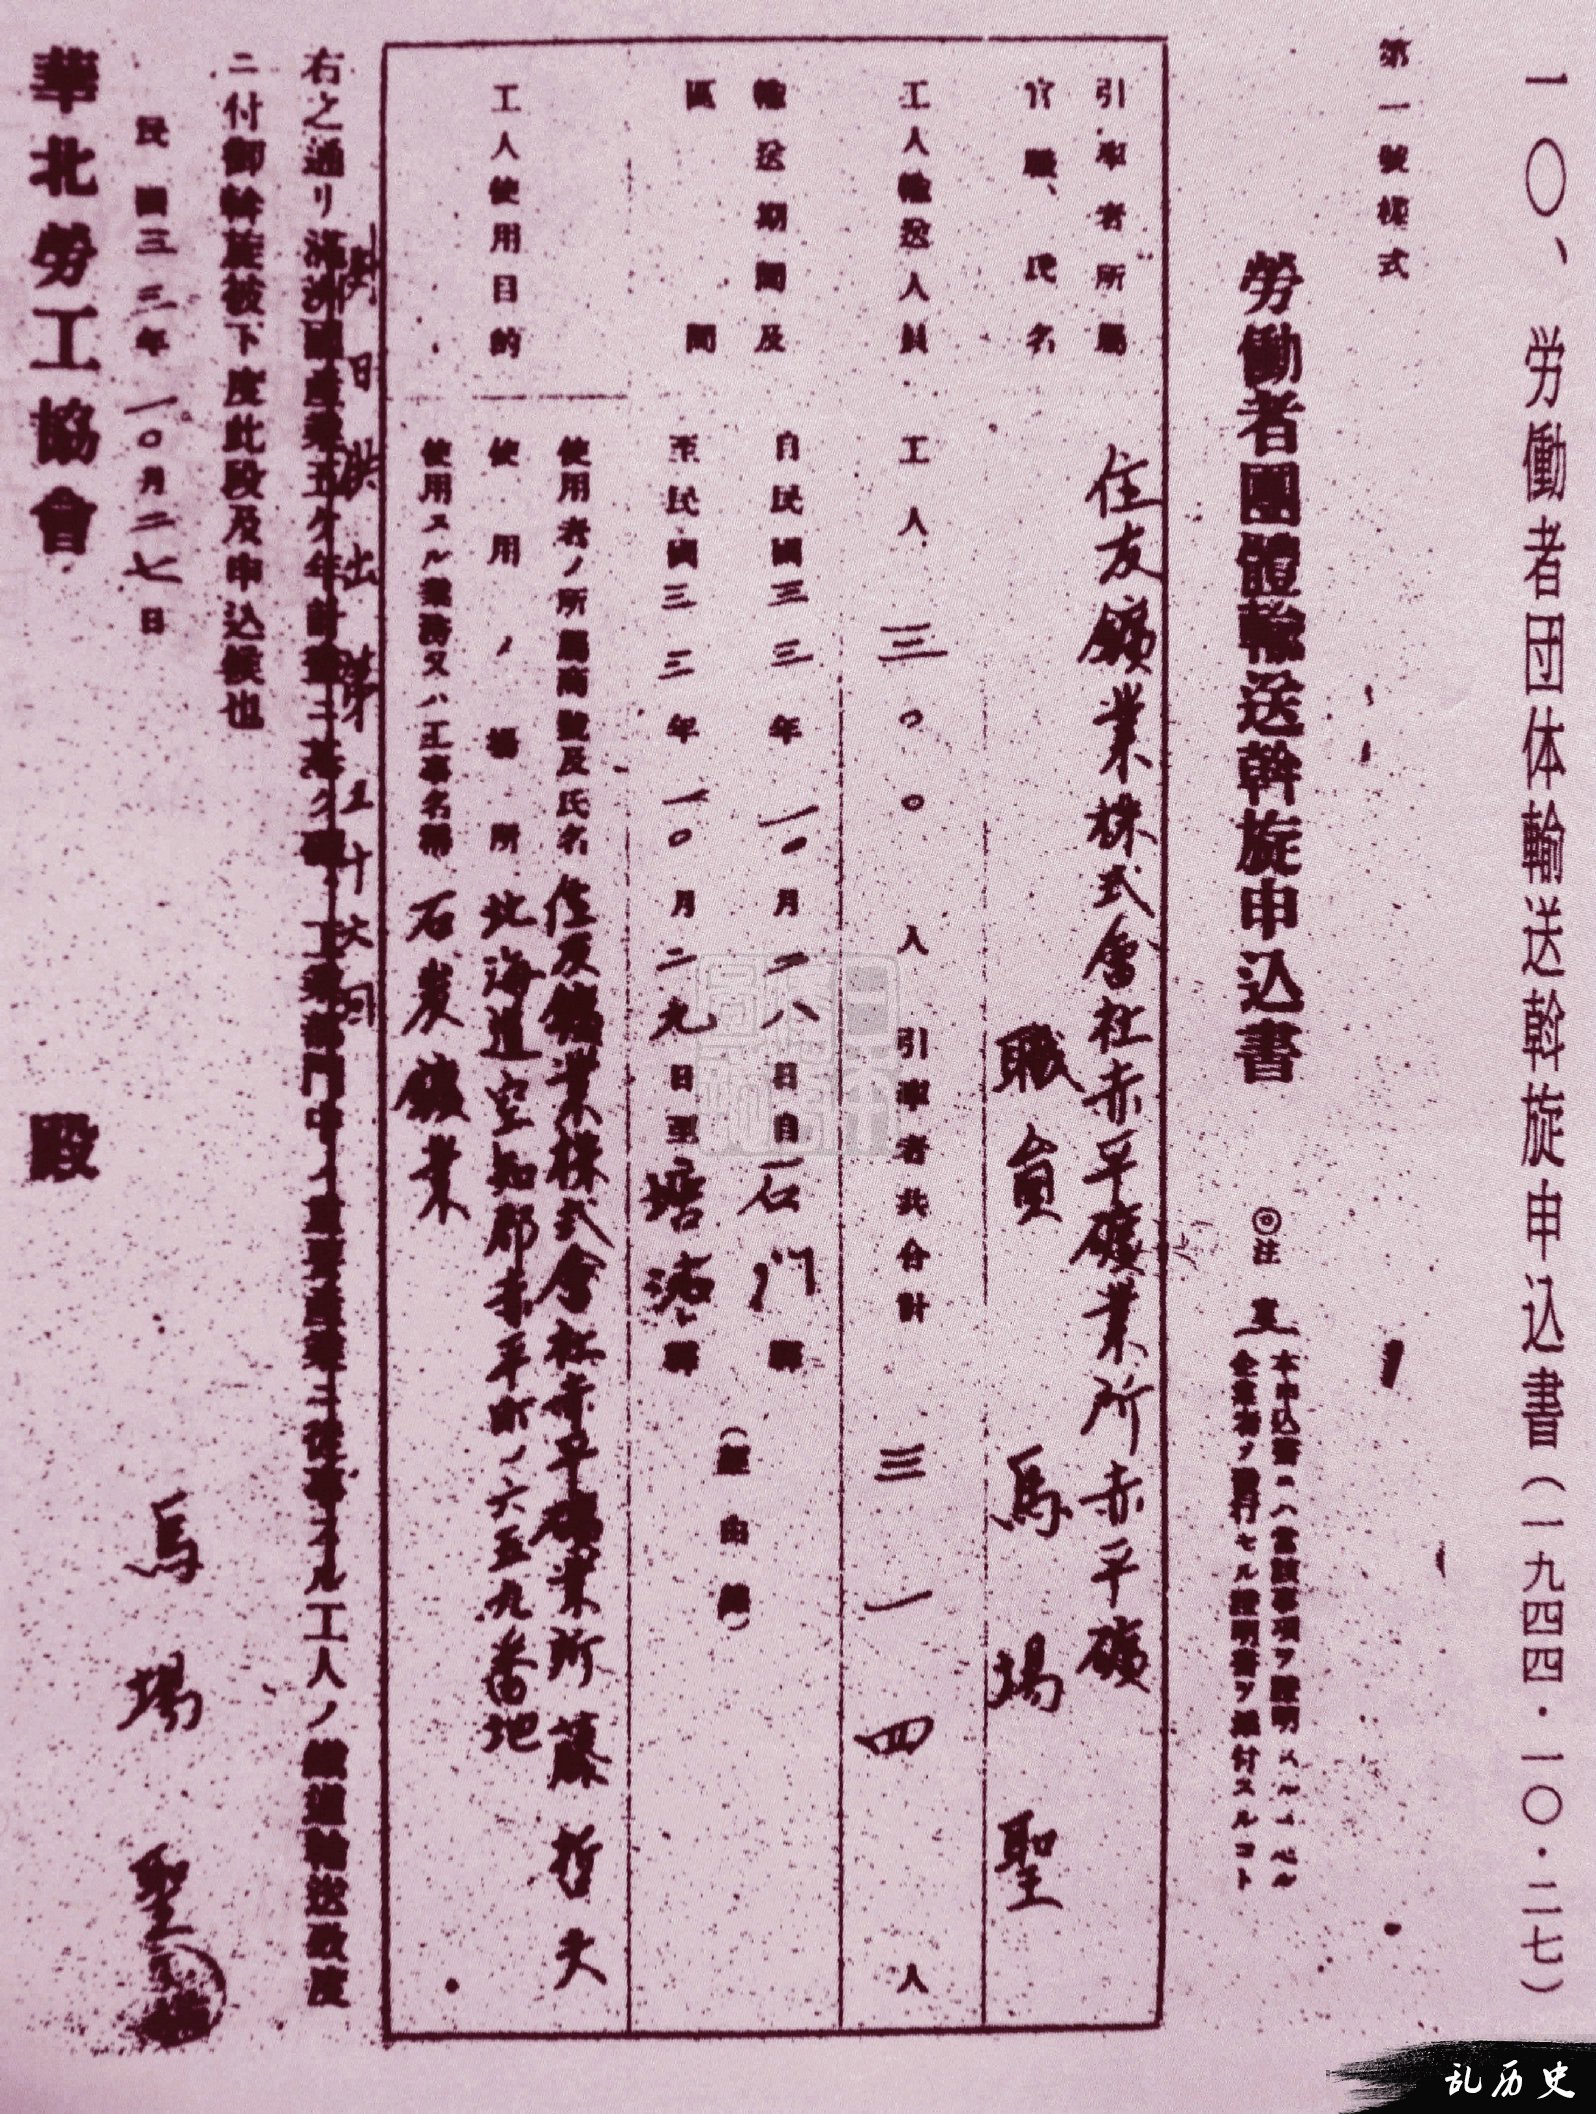 一〇、労働者団体輸送斡旋申込書(一九四四・一〇・二七)
第一號樣式
勞働者團體輸送斡旋申込書
◎注意
本申込書ニハ當該事項ヲ證明スル
ヲ添付スルコト
引率者所屬
官職、氏名
住友鑛業株式會社赤平礦業所赤平礦
職員 馬場聖
工人輸送人員
工人 三〇〇人 引率者共合計 三一四人
輸送期間及
區間
自民國三三年一〇月二八日自石門驛
至民國三三年一〇月二九日至塘沽驛
(經由線)
工人使用目的
使用者ノ所屬商號及氏名 住友鑛業株式會社赤平礦業所 藤哲夫
使用ノ場所 北海道空知郡赤平町ノ六五九番地
使用スル業務又ハ工事名稱 石炭鑛業
右之通リ滿洲國產業五ケ年計畫ニ基ク
重要產業ニ從事スル工人ノ鐵道輸送致度
ニ付御斡旋被下度此段及申込候也
民國三三年一〇月二七日
馬場聖
華北勞工協會 殿
乱历史